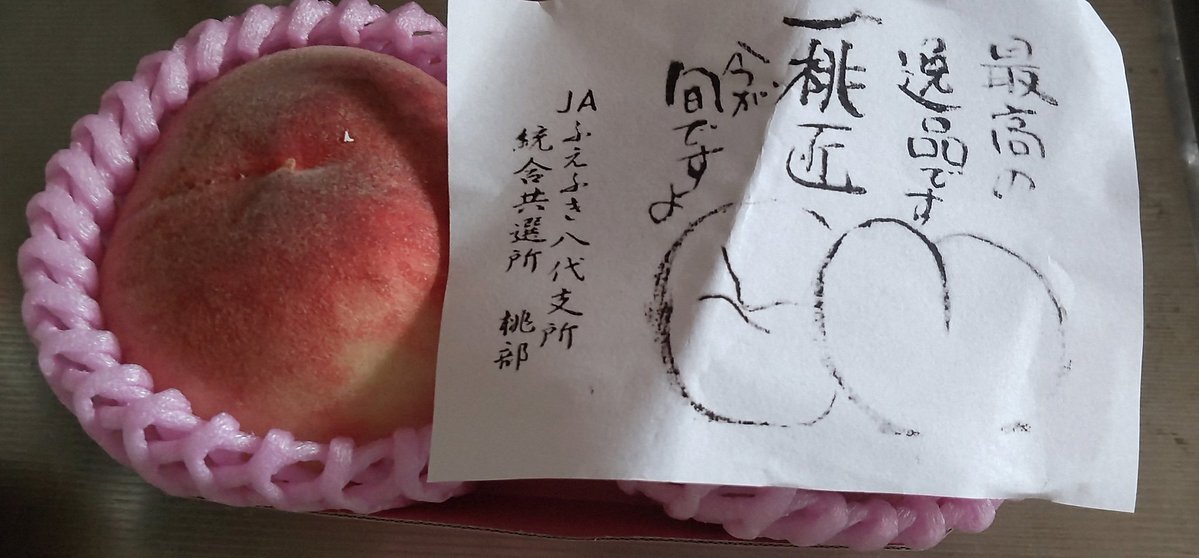 最高の
逸品です
一桃匠
今が
旬ですよ
JAふえふき八代支所
統合共選所 桃部